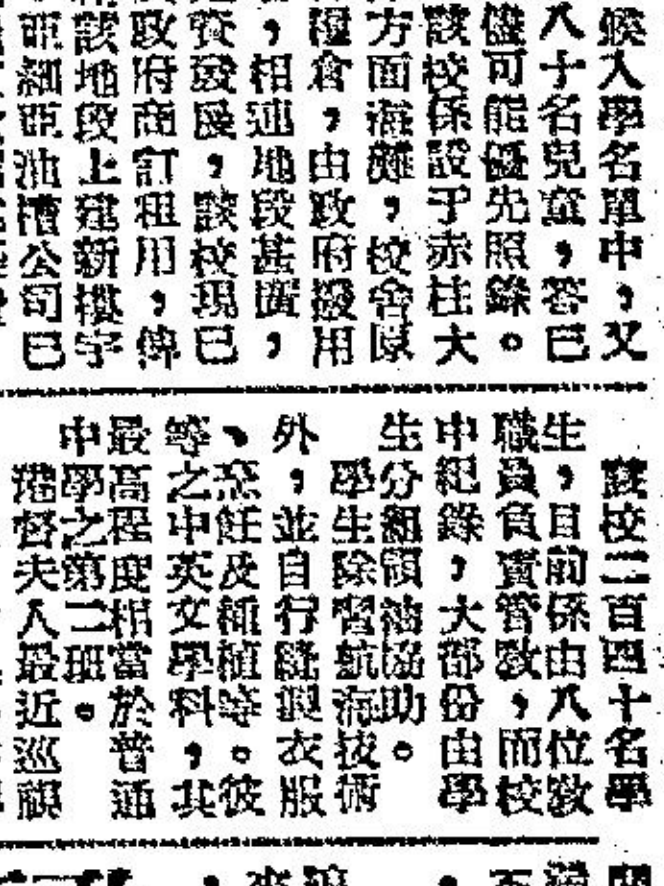 候入學名單中，又
八十名兒童，答已
儘可能優先照錄。
該校係設于赤柱大
方面海灘，校舍原
糧倉，由政府撥用
，相連地段甚廣，
資發展，該校現已
政府商訂租用，俾
該地段上建新樓宇
亞細亞油槽公司已
該校二百四十名學
生，目前係由八位教
職員負責管教，而校
中紀錄，大部份由學
生分組領袖協助。
學生除習航海技術
外，並自行縫製衣服
、烹飪及種植等。彼
等之中英文學科，其
最高程度相當於普通
中學之第二班。
港督夫人最近巡視